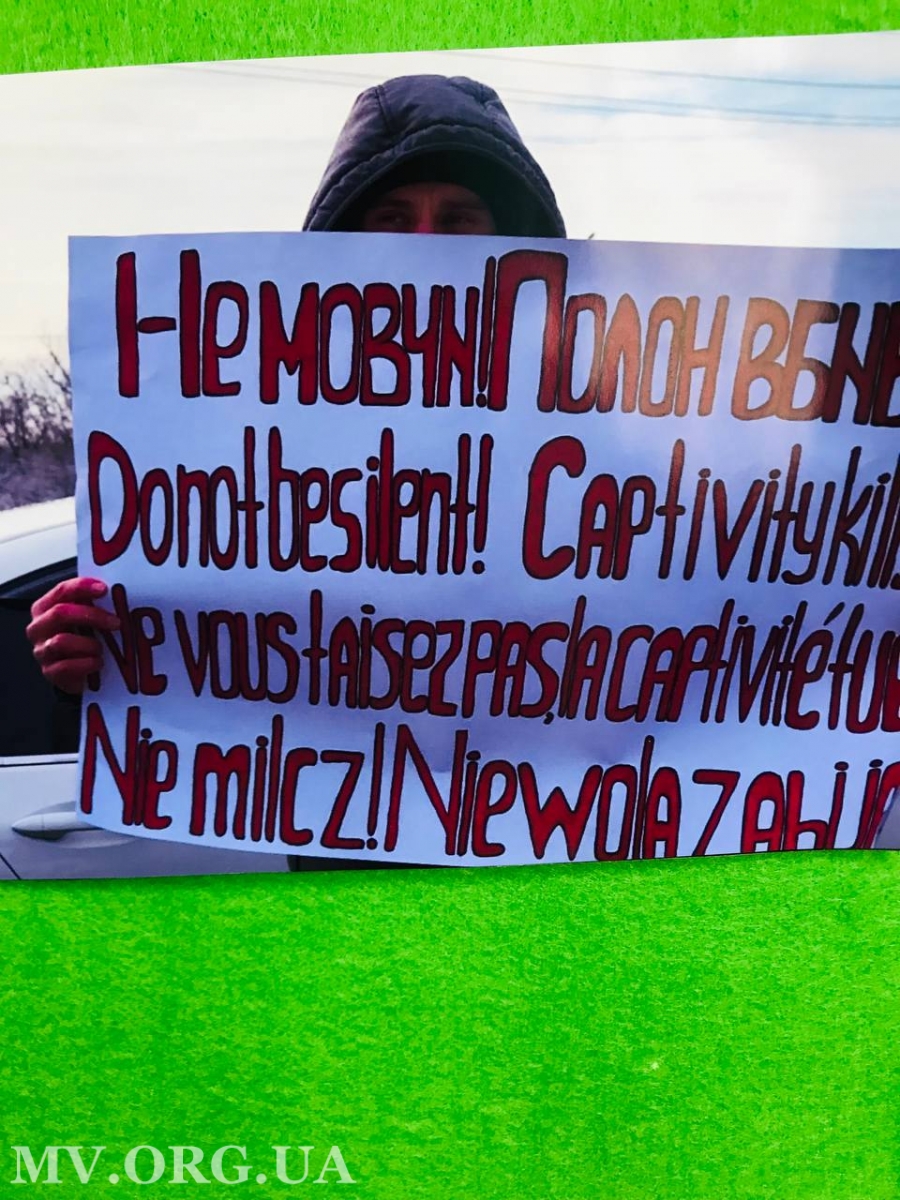 Не мовчи! Полон вбиває
Do not be silent! Captivity kills
Ne vous taisez pas, la captivité tue
Nie milcz! Niewola zabija
MV.ORG.UA